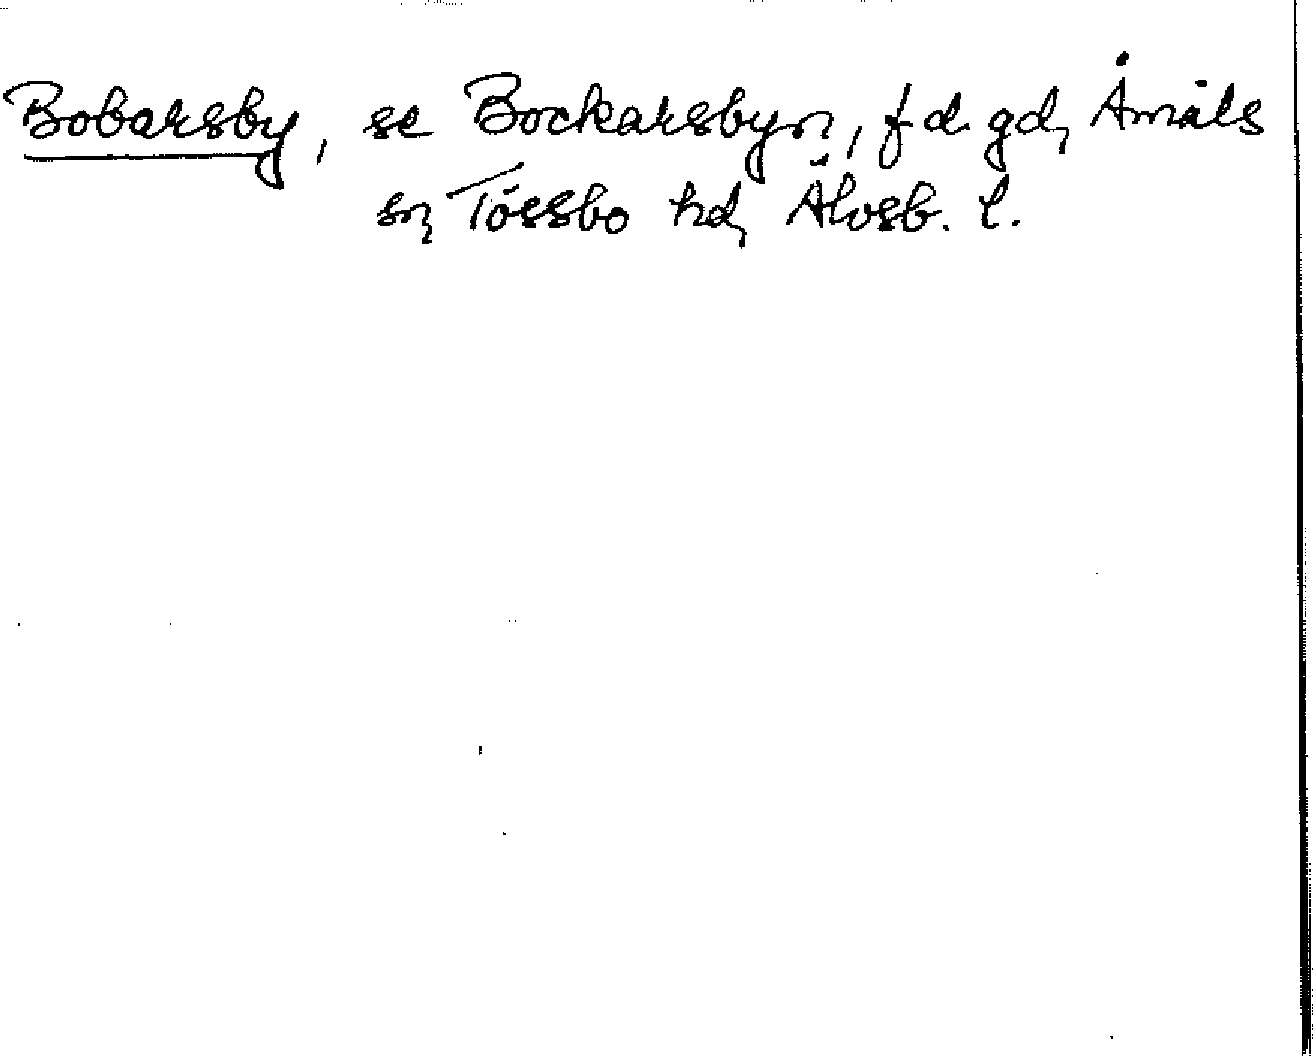 Bobarsby, se Bockarsbyn, f d. gd, Åmåls
sn, Tössbo hd, Älvsb. l.